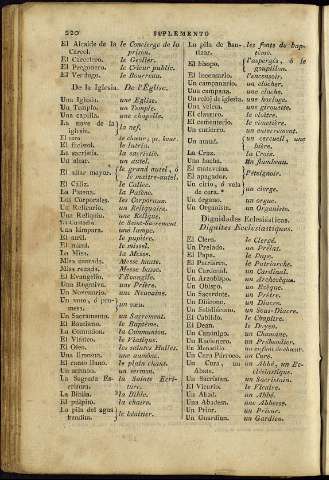 220 SUPLEMENTO
El Alcaide de la Carcel. le Concierge de la prison.
El Carcelero. le Geolier.
El Pregonero. le Crieur public.
El Verdugo. le Bourreau.
De la Iglesia. De l'Église.
Una Iglesia. une Eglise.
Un Templo. un Temple.
Una capilla. une chapelle.
La nave de la iglesia. la nef.
El coro le choeur,
El facistol. le lutrin.
La sacristía. la sacristie.
Un altar. un autel.
El altar mayor. le grand autel, ó le maitre-autel.
El Cáliz. le Calice.
La Patena. la Patène.
Los Corporales. le Corporaux.
Un Relicario. un Reliquaire.
Una Reliquia. une Relique.
le Saint-Sacrement
Una lámpara. une lampe.
El atril. le pupitre.
El misal. le missel.
La Misa. la Messe.
Misa cantada. Messe haute.
Misa rezada. Messe basse.
El Evangelio. l'Evangile.
une Prière.
Un Novenario. une Neuvaine.
un vœu.
Un Sacramento. un Sacrement.
El Bautismo. le Baptême.
La Comunion. la Communion.
El Viático. le Viatique.
El Oleo. les saintes Huiles.
Una limosna. une aumône.
El canto llano. le plain chant.
Un sermon. un sermon.
La Sagrada Escritura. la Sainte Ecriture.
La Biblia. la Bible.
El púlpito. la chaire.
La pila del agua bendita. le bénitier.
La pila de bautizar. les fonts de baptême.
El hisopo. l'aspergès, ó le goupillon.
El incensario. l'encensoir.
Un campanario. un clocher.
Una campana. une cloche.
Un reloj de iglesia. une horloge.
Una veleta. une girouette.
Un claustro. un cloître.
El cementerio. le cimetière.
Un entierro. un enterrement.
un cercueil, ou une bière.
La Cruz. la Croix.
Una hacha. un flambeau.
El apagador. l'éteignoir.
Un cirio, ó vela de cera. un cierge.
Un órgano. un orgue.
Un Organista. un Organiste.
Dignidades Eclesiásticas.
Dignites Ecclesiastiques.
El Clero. le Clergé.
Un Prelado. un Prélat.
El Papa. le Pape.
El Patriarca. le Patriarche.
Un Cardenal. un Cardinal.
Un Arzobispo. un Archevêque.
Un Obispo. un Evêque.
Un Sacerdote. un Prêtre.
Un Diácono. un Diacre.
Un Subdiácono. un Sous-Diacre.
Un Cabildo. le Chapitre.
El Dean. le Doyen.
Un Canónigo. un Chanoine.
Un Racionero. un Prébendier.
un enfant de chœur.
Un Cura Párroco. un Curé.
Un Cura, un Abate. un Abbé, un Ecclésiastique.
Un Sacristan. un Sacristain.
El Vicario. le Vicaire.
Un Abad. un Abbé.
Una Abadesa. une Abbesse.
Un Prior. un Prieur.
Un Guardian. un Gardien.